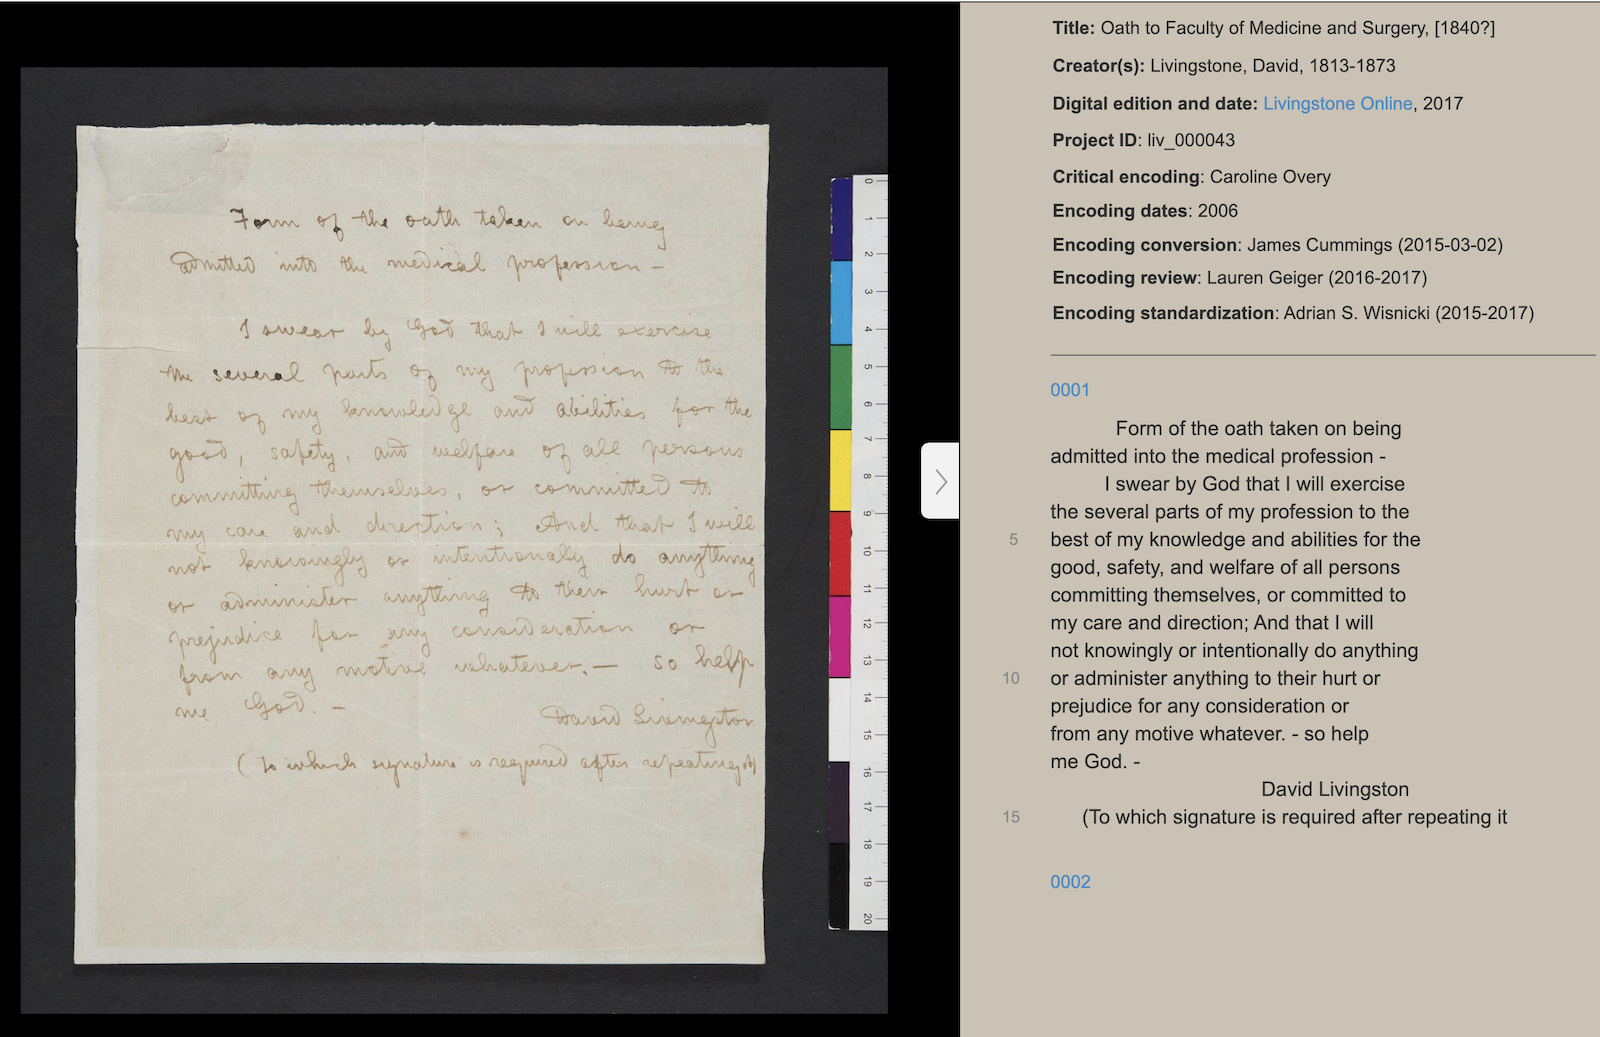 Form of the oath taken on being
admitted into the medical profession -
I swear by God that I will exercise
the several parts of my profession to the
best of my knowledge and abilities for the
good, safety, and welfare of all persons
committing themselves, or committed to
my care and direction; And that I will
not knowingly or intentionally do anything
or administer anything to their hurt or
prejudice for any consideration or
from any motive whatever. - so help
me God. -
David Livingston
(To which signature is required after repeating it)
0
1
2
3
4
5
6
7
8
9
10
11
12
13
14
15
16
17
18
19
20
Title: Oath to Faculty of Medicine and Surgery, [1840?]
Creator(s): Livingstone, David, 1813-1873
Digital edition and date: Livingstone Online, 2017
Project ID: liv_000043
Critical encoding: Caroline Overy
Encoding dates: 2006
Encoding conversion: James Cummings (2015-03-02)
Encoding review: Lauren Geiger (2016-2017)
Encoding standardization: Adrian S. Wisnicki (2015-2017)
0001
Form of the oath taken on being
admitted into the medical profession -
I swear by God that I will exercise
the several parts of my profession to the
5 best of my knowledge and abilities for the
good, safety, and welfare of all persons
committing themselves, or committed to
my care and direction; And that I will
not knowingly or intentionally do anything
10 or administer anything to their hurt or
prejudice for any consideration or
from any motive whatever. - so help
me God. -
David Livingston
15 (To which signature is required after repeating it
0002